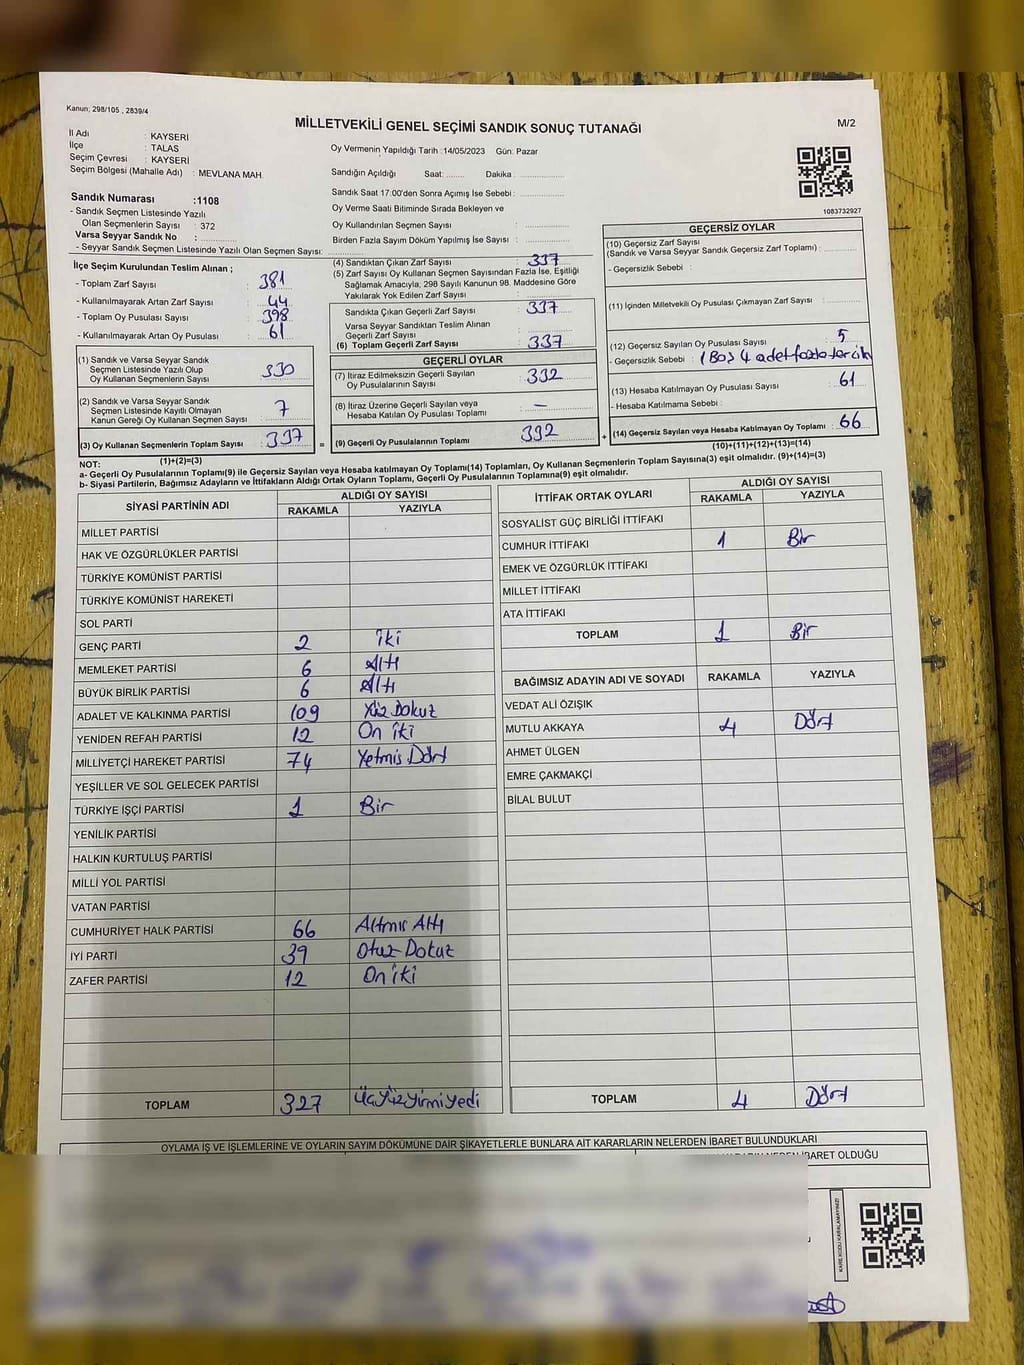 Kanun; 298/105 , 2839/4
MİLLETVEKİLİ GENEL SEÇİMİ SANDIK SONUÇ TUTANAĞI
M/2
İl Adı : KAYSERİ
İlçe : TALAS
Seçim Çevresi : KAYSERİ
Seçim Bölgesi (Mahalle Adı) : MEVLANA MAH.
Oy Vermenin Yapıldığı Tarih :14/05/2023 Gün: Pazar
Sandığın Açıldığı Saat: Dakika :
Sandık Saat 17:00'den Sonra Açımış İse Sebebi :
Oy Verme Saati Bitiminde Sırada Bekleyen ve
Oy Kullandırılan Seçmen Sayısı :
Birden Fazla Sayım Döküm Yapılmış İse Sayısı :
Sandık Numarası :1108
- Sandık Seçmen Listesinde Yazılı
Olan Seçmenlerin Sayısı : 372
Varsa Seyyar Sandık No :
- Seyyar Sandık Seçmen Listesinde Yazılı Olan Seçmen Sayısı:
1083732927
İlçe Seçim Kurulundan Teslim Alınan ;
- Toplam Zarf Sayısı : 381
- Kullanılmayarak Artan Zarf Sayısı : 44
- Toplam Oy Pusulası Sayısı : 398
- Kullanılmayarak Artan Oy Pusulası : 61
(1) Sandık ve Varsa Seyyar Sandık
Seçmen Listesinde Yazılı Olup
Oy Kullanan Seçmenlerin Sayısı : 330
(2) Sandık ve Varsa Seyyar Sandık
Seçmen Listesinde Kayıtlı Olmayan
Kanun Gereği Oy Kullanan Seçmen Sayısı : 7
(3) Oy Kullanan Seçmenlerin Toplam Sayısı : 337 =
(1)+(2)=(3)
(4) Sandıktan Çıkan Zarf Sayısı : 337
(5) Zarf Sayısı Oy Kullanan Seçmen Sayısından Fazla İse, Eşitliği
Sağlamak Amacıyla; 298 Sayılı Kanunun 98. Maddesine Göre
Yakılarak Yok Edilen Zarf Sayısı :
Sandıkta Çıkan Geçerli Zarf Sayısı : 337
Varsa Seyyar Sandıktan Teslim Alınan
Geçerli Zarf Sayısı :
(6) Toplam Geçerli Zarf Sayısı : 337
GEÇERLİ OYLAR
(7) İtiraz Edilmeksizin Geçerli Sayılan
Oy Pusulalarının Sayısı : 332
(8) İtiraz Üzerine Geçerli Sayılan veya
Hesaba Katılan Oy Pusulası Toplamı : —
(9) Geçerli Oy Pusulalarının Toplamı : 332 +
GEÇERSİZ OYLAR
(10) Geçersiz Zarf Sayısı
(Sandık ve Varsa Seyyar Sandık Geçersiz Zarf Toplamı) :
- Geçersizlik Sebebi :
(11) İçinden Milletvekili Oy Pusulası Çıkmayan Zarf Sayısı :
(12) Geçersiz Sayılan Oy Pusulası Sayısı : 5
- Geçersizlik Sebebi : 1 Boş 4 adet fazla tercih
(13) Hesaba Katılmayan Oy Pusulası Sayısı : 61
- Hesaba Katılmama Sebebi :
(14) Geçersiz Sayılan veya Hesaba Katılmayan Oy Toplamı : 66
(10)+(11)+(12)+(13)=(14)
NOT:
a- Geçerli Oy Pusulalarının Toplamı(9) ile Geçersiz Sayılan veya Hesaba katılmayan Oy Toplamı(14) Toplamları, Oy Kullanan Seçmenlerin Toplam Sayısına(3) eşit olmalıdır. (9)+(14)=(3)
b- Siyasi Partilerin, Bağımsız Adayların ve İttifakların Aldığı Ortak Oyların Toplamı, Geçerli Oy Pusulalarının Toplamına(9) eşit olmalıdır.
SİYASİ PARTİNİN ADI
ALDIĞI OY SAYISI
RAKAMLA YAZIYLA
MİLLET PARTİSİ
HAK VE ÖZGÜRLÜKLER PARTİSİ
TÜRKİYE KOMÜNİST PARTİSİ
TÜRKİYE KOMÜNİST HAREKETİ
SOL PARTİ
GENÇ PARTİ 2 İki
MEMLEKET PARTİSİ 6 Altı
BÜYÜK BİRLİK PARTİSİ 6 Altı
ADALET VE KALKINMA PARTİSİ 109 Yüz Dokuz
YENİDEN REFAH PARTİSİ 12 On iki
MİLLİYETÇİ HAREKET PARTİSİ 74 Yetmis Dört
YEŞİLLER VE SOL GELECEK PARTİSİ
TÜRKİYE İŞÇİ PARTİSİ 1 Bir
YENİLİK PARTİSİ
HALKIN KURTULUŞ PARTİSİ
MİLLİ YOL PARTİSİ
VATAN PARTİSİ
CUMHURİYET HALK PARTİSİ 66 Altmıs Altı
İYİ PARTİ 39 Otuz Dokuz
ZAFER PARTİSİ 12 On iki
TOPLAM 327 ÜçYüzYirmiYedi
İTTİFAK ORTAK OYLARI
ALDIĞI OY SAYISI
RAKAMLA YAZIYLA
SOSYALİST GÜÇ BİRLİĞİ İTTİFAKI
CUMHUR İTTİFAKI 1 Bir
EMEK VE ÖZGÜRLÜK İTTİFAKI
MİLLET İTTİFAKI
ATA İTTİFAKI
TOPLAM 1 Bir
BAĞIMSIZ ADAYIN ADI VE SOYADI RAKAMLA YAZIYLA
VEDAT ALİ ÖZIŞIK
MUTLU AKKAYA 4 Dört
AHMET ÜLGEN
EMRE ÇAKMAKÇİ
BİLAL BULUT
TOPLAM 4 Dört
OYLAMA İŞ VE İŞLEMLERİNE VE OYLARIN SAYIM DÖKÜMÜNE DAİR ŞİKAYETLERLE BUNLARA AİT KARARLARIN NELERDEN İBARET BULUNDUKLARI
İBARET OLDUĞU
KARE KODU KARALAMAYINIZ!